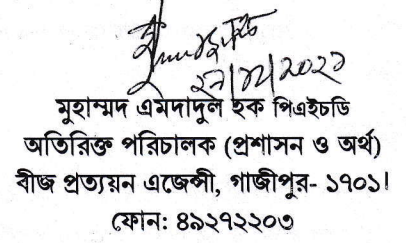 ২৭/১২/২০২১
মুহাম্মদ এমদাদুল হক পিএইচডি
অতিরিক্ত পরিচালক (প্রশাসন ও অর্থ)
বীজ প্রত্যয়ন এজেন্সী, গাজীপুর- ১৭০১।
ফোন: ৪৯২৭২২০৩